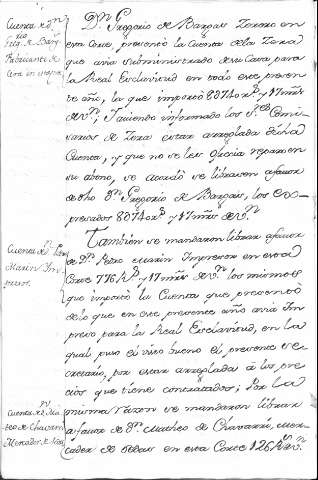 Cuenta de Dn
Greg.rio de Barg.s
Fabricante de
Cera en esta
Dn Gregorio de Bargas Zerero en
esta Corte, presentó la Cuenta de la Zera
que avia subministrado de su Casa para
la Real Esclavitud en todo este presen
te año, la que importó 8074 rs y 17 mrs
de Vn; y aviendo informado los Sres Comi
sarios de Zera estar arreglada dicha
Cuenta, y que no se les ofrecia reparo en
su abono, se acordó se librasen a favor
de dho Dn Gregorio de Bargas, los ex-
presados 8074 rs y 17 mrs de Vn
Cuenta de Dn Pedro
Marin Im-
presor.
Tambien se mandaron librar a favor
de Dn Pedro Marin Impresor en esta
Corte 776 rs y 17 mrs de Vn los mismos
que importó la Cuenta que presentó
de lo que en este presente año avia Im
preso para la Real Esclavitud, en la
qual puso el visto bueno el presente Se
cretario, por estar arreglada á los pre
cios que tiene contratados; Por la
Cuenta de Dn Ma
teo de Chavarri
Mercader de Sedas
misma razon se mandaron librar
a favor de Dn Matheo de Chavarri, Mer
cader de sedas en esta Corte 126 rs Vn